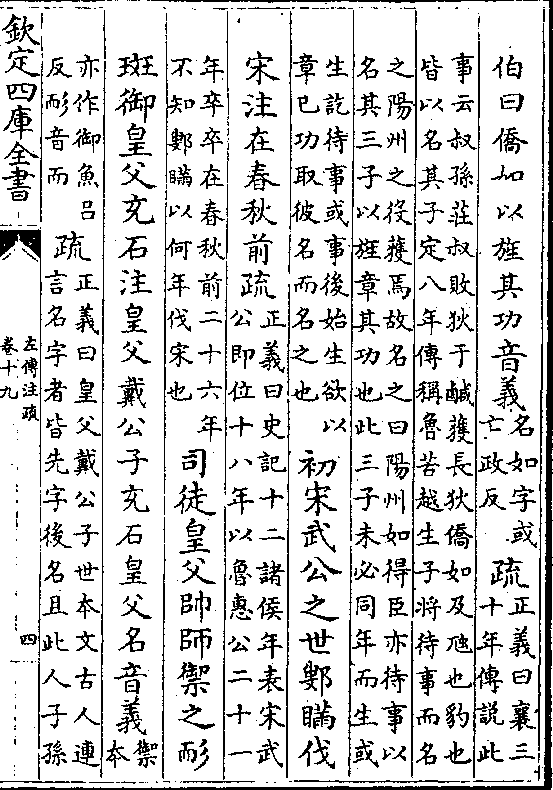 伯曰僑如以旌其功音義名如字或
亡政反疏正義曰襄三
十年傳説此
事云叔孫莊叔敗狄于鹹獲長狄僑如及虺也豹也
皆以名其子定八年傳稱魯苦越生子將待事而名
之陽州之役獲焉故名之曰陽州如得臣亦待事以
名其三子以旌章其功也此三子未必同年而生或
生訖待事或事後始生欲以
章已功取彼名而名之也初宋武公之世鄋瞞伐
宋注在春秋前疏正義曰史記十二諸侯年表宋武
公即位十八年以魯惠公二十一
年卒卒在春秋前二十六年
不知鄋瞞以何年伐宋也司徒皇父帥師禦之耏
斑御皇父充石注皇父戴公子充石皇父名音義禦
本
亦作御魚吕
反耏音而疏正義曰皇父戴公子世本文古人連
言名字者皆先字後名且此人子孫
欽定四庫全書
左傳注疏
卷十九
四